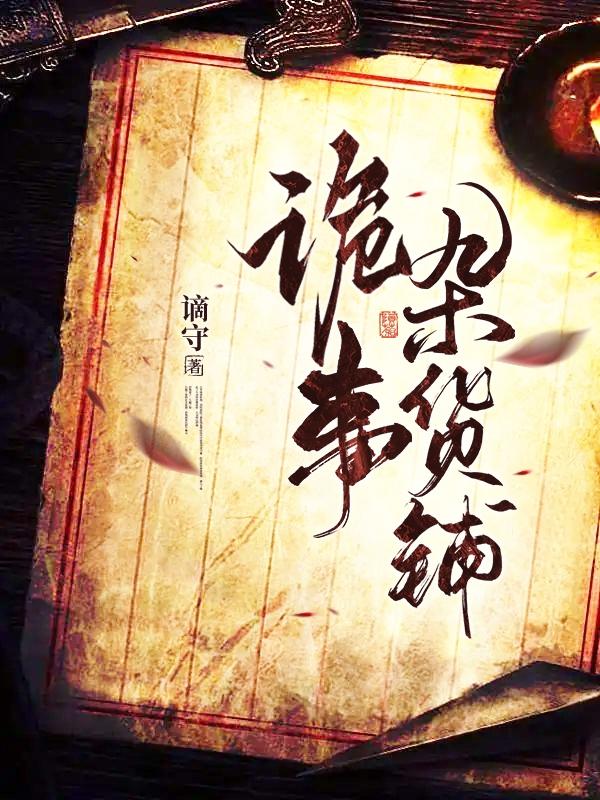 诡事
杂货铺
谪守 著